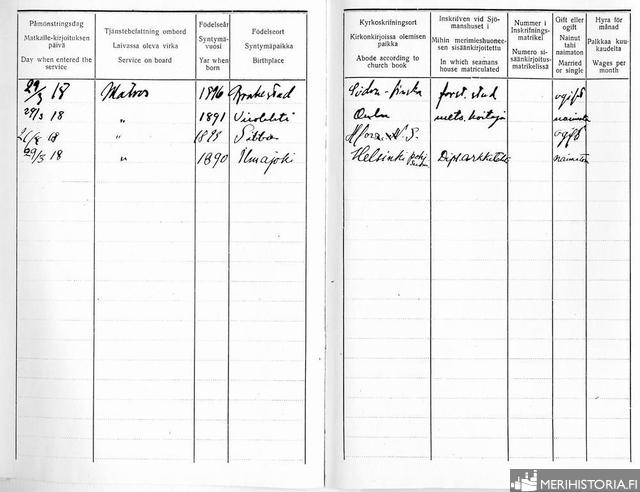 Påmönstringsdag
Matkalle-kirjoituksen
päivä
Day when entered the
service
Tjänstebefattning ombord
Laivassa oleva virka
Service on board
Födelseår
Syntymä-
vuosi
Yar when
born
Födelseort
Syntymäpaikka
Birthplace
29/3 18 Matros 1896 Brahestad
29/3 18 " 1891 Virolahti
18 " Sibbo
29/3 18 " 1890 Ilmajoki
Kyrkoskrifningsort
Kirkonkirjoissa olemisen
paikka
Abode according to
church book
Inskrifven vid Sjö-
manshuset i
Mihin merimieshuonee-
sen sisäänkirjoitettu
In which seamans
house matriculated
Nummer i
Inskrifnings-
matrikel
Numero si-
säänkirjoitus-
matrikelissä
Gift eller
ogift
Nainut
tahi
naimaton
Married
or single
Hyra för
månad
Palkkaa kuu-
kaudelta
Wages per
month
Södra-finska forst. stud ogift
Oulu mets. hoitaja
ogift
Helsinki pohj. Dipl. arkkitehti naimaton
MERIHISTORIA.FI